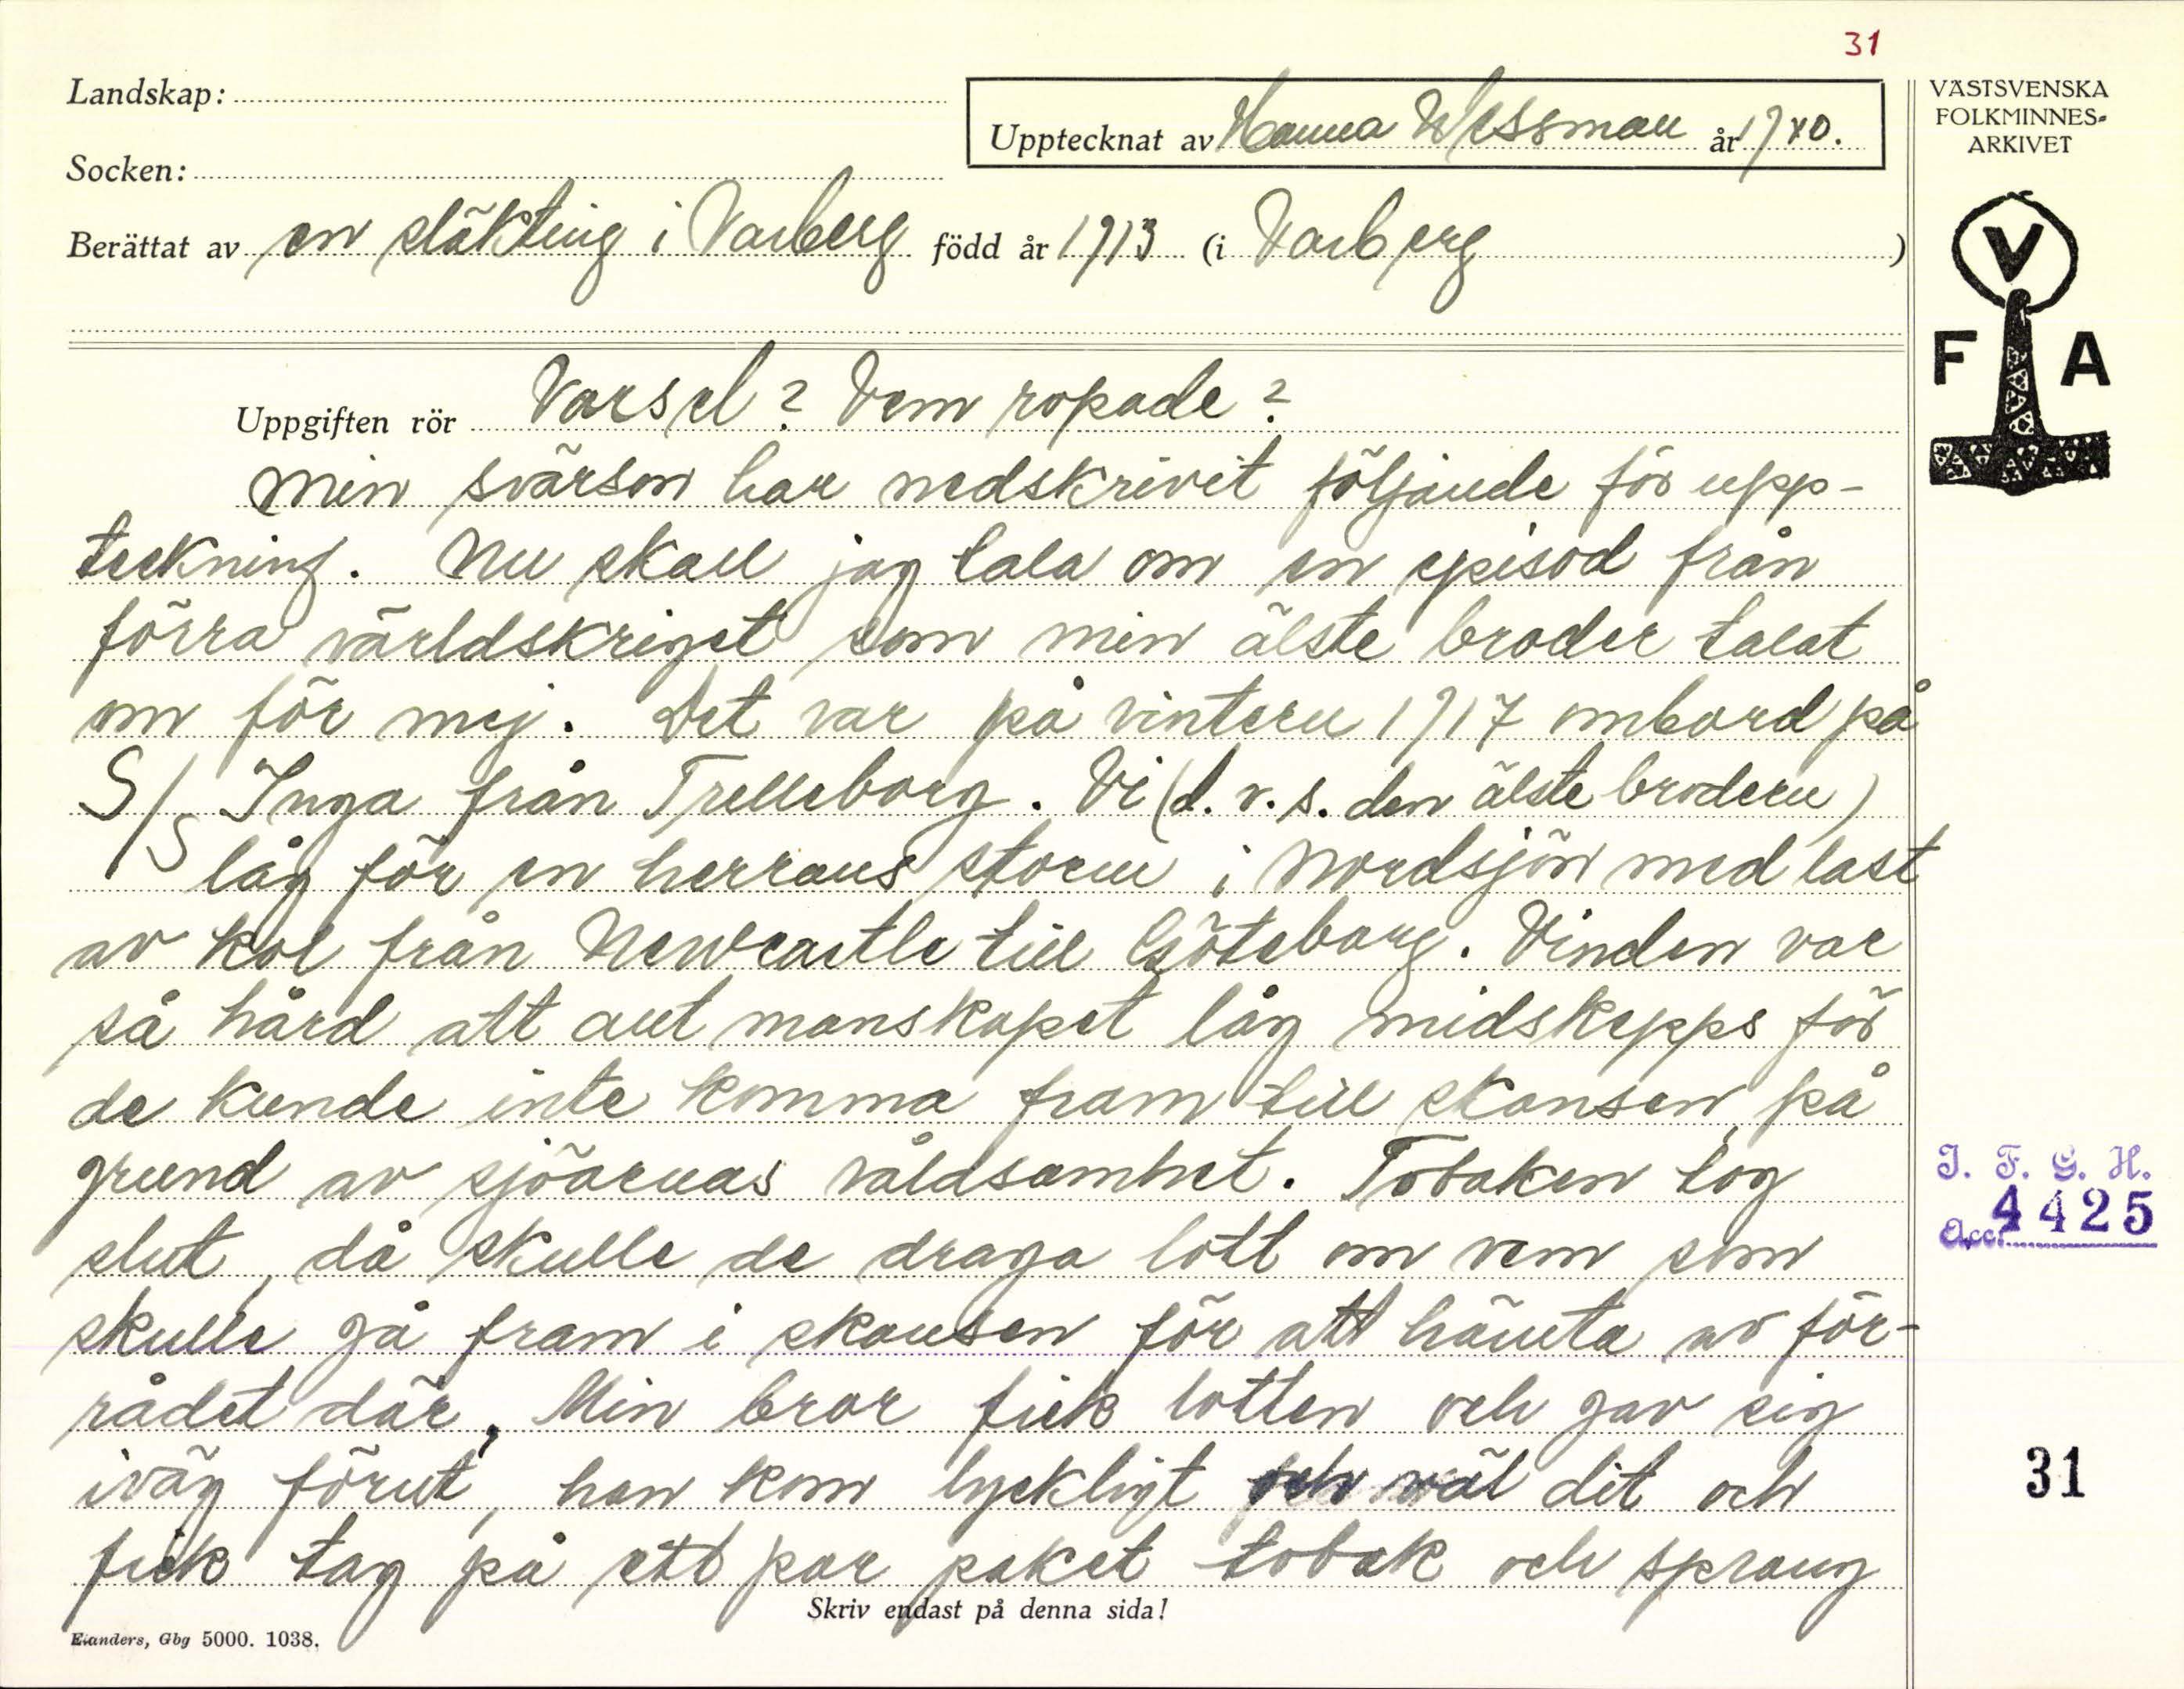 31
Landskap:
Upptecknat av Hanna Wessman år 1940.
Socken:
Berättat av en släkting i Varberg född år 1913 (i Varberg)
VÄSTSVENSKA
FOLKMINNES-
ARKIVET
V
F A
Uppgiften rör Varsel? Vem ropade?
Min svärson har nedskrivit följande för upp-
teckning. Nu skall jag tala om en episod från
förra världskriget som min älste broder talat
om för mej. Det var på vintern 1917 ombord på
S/S Inga från Trelleborg. Vi (d.v.s. den älste brodern)
låg för en herrans storm i Nordsjön med last
av kol från Newcastle till Göteborg. Vinden var
så hård att allt manskapet låg midskepps för
de kunde inte komma fram till skansen på
grund av sjöarnas våldsamhet. Tobaken tog
slut, då skulle de draga lott om vem som
skulle gå fram i skansen för att hämta av för-
rådet där. Min bror fick lotten och gav sig
iväg förut, han kom lyckligt och väl dit och
fick tag på ett par paket tobak och sprang
Skriv endast på denna sida!
Elanders, Gbg 5000. 1038.
I. F. G. H.
Acc. 4425
31